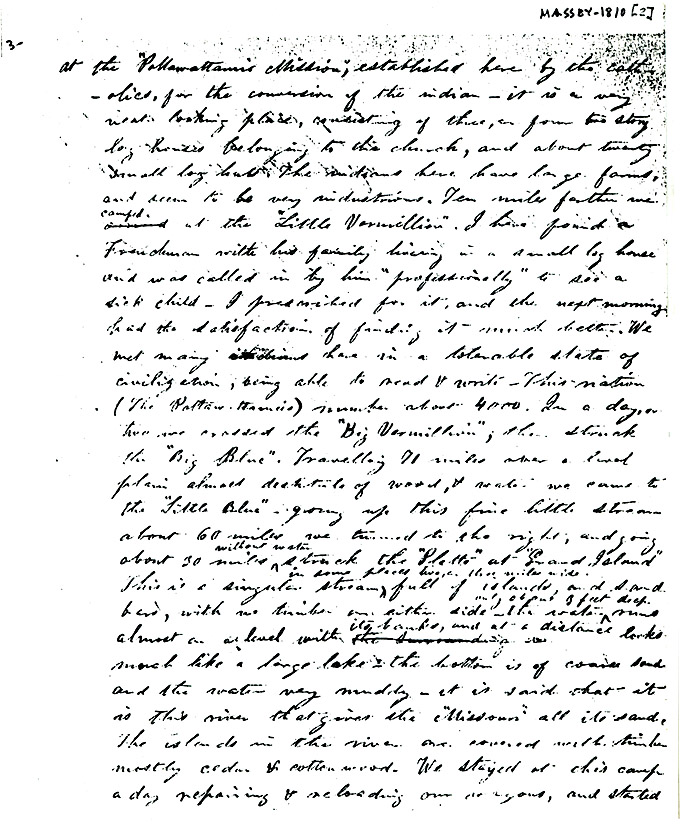 MASSEY-1810 [2]
3-
at the "Pottawattamie Mission", established here by the cath-
-olics, for the conversion of the indian - it is a very
neat looking place, consisting of three, or four two story
log houses belonging to the church, and about twenty
small log huts. The indians here have large farms,
and seem to be very industrious. Ten miles farther we
camped at the "Little Vermillion". I here found a
Frenchman with his family living in a small log house
and was called in by him "professionally" to see a
sick child - I prescribed for it, and the next morning
had the satisfaction of finding it much better. We
met many indians here in a tolerable state of
civilization, being able to read & write - This nation
(The Pottawattamies) number about 4000. In a day, or
two we crossed the "Big Vermillion"; then struck
the "Big Blue". Travelling 71 miles over a level
plain almost destitute of wood, & water we came to
the "Little Blue" - going up this fine little stream
about 60 miles we turned to the right, and going
about 30 miles without water struck the "Platte" at "Grand Island"
This is a singular stream, in some places two or three miles wide, full of islands and sand
bars, with no timber on either side - the water runs
almost on a level with its banks, and at a distance looks
much like a large lake - the bottom is of coarse sand
and the water very muddy - it is said that it
is this river that gives the "Missouri" all its sand.
The islands in the river are covered with timber
mostly cedar & cottonwood. We stayed at this camp
a day repairing & reloading our wagons, and started